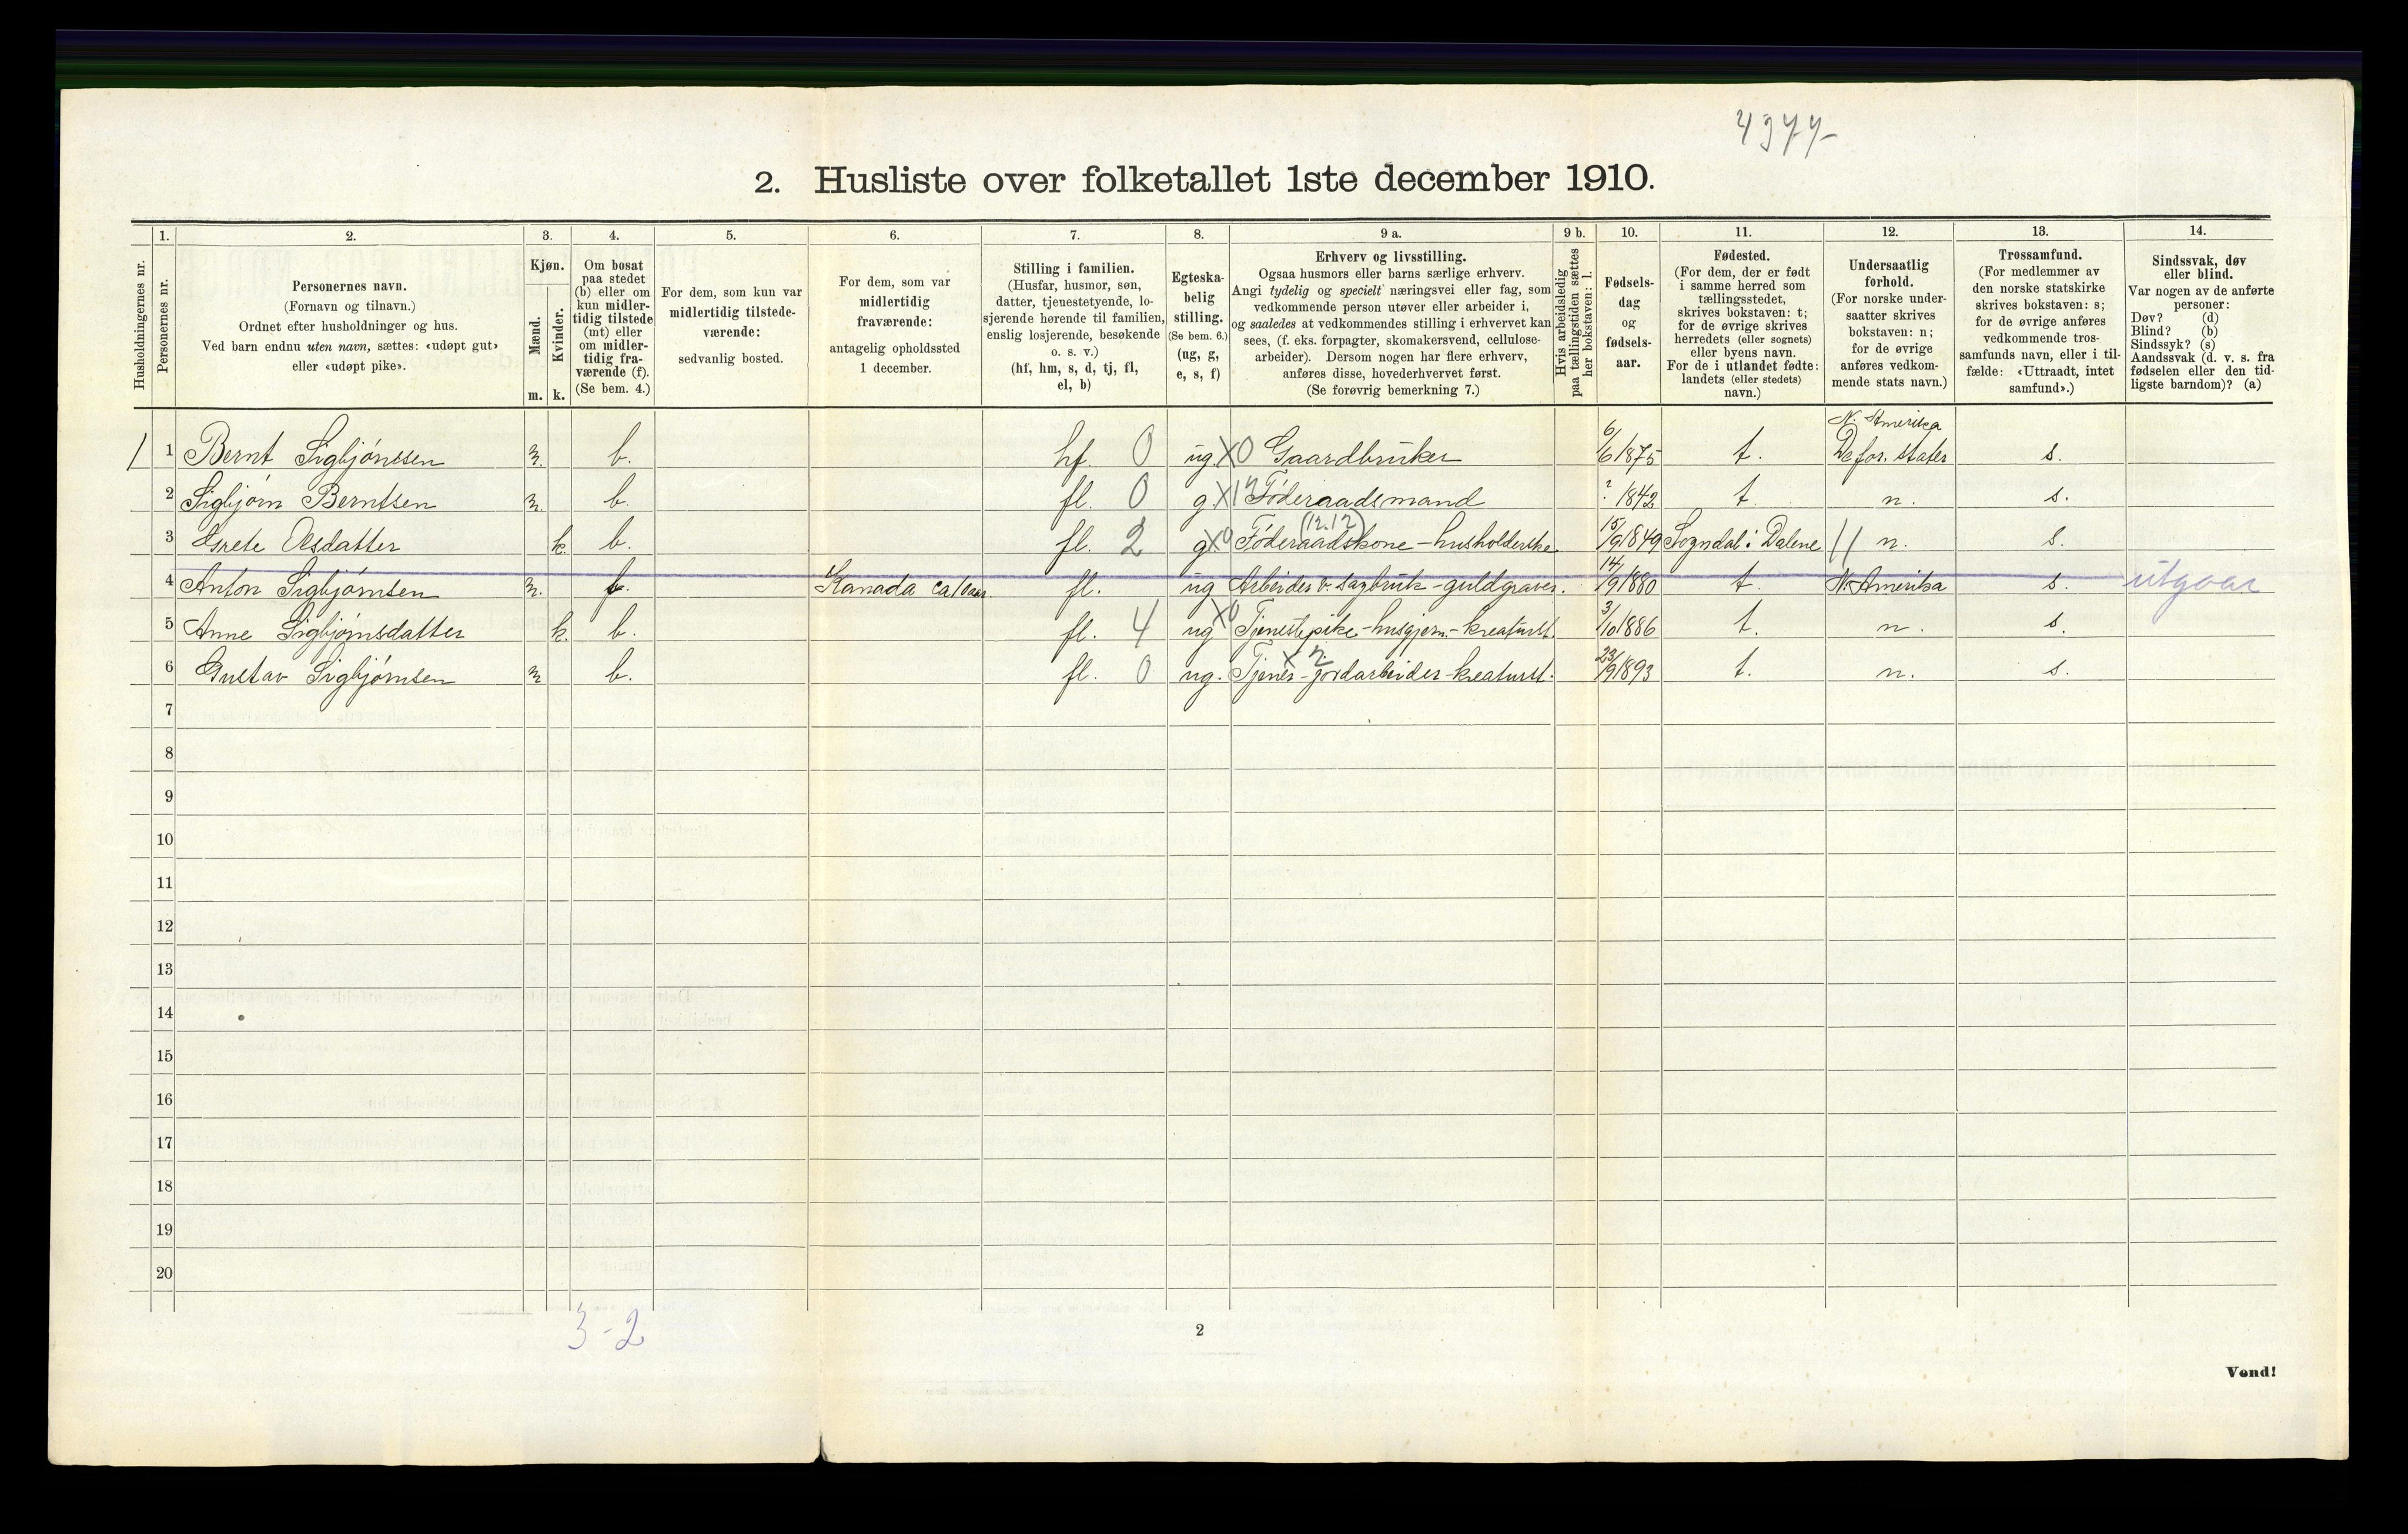 4977-
2. Husliste over folketallet 1ste december 1910.
Husholdningernes nr.
1.
Personernes nr.
2.
Personernes navn.
(Fornavn og tilnavn.)
Ordnet efter husholdninger og hus.
Ved barn endnu uten navn, sættes: «udøpt gut»
eller «udøpt pike».
3.
Kjøn.
Mænd.
Kvinder.
m. k.
4.
Om bosat
paa stedet
(b) eller om
kun midler-
tidig tilstede
(mt) eller
om midler-
tidig fra-
værende (f).
(Se bem. 4.)
5.
For dem, som kun var
midlertidig tilstede-
værende:
sedvanlig bosted.
6.
For dem, som var
midlertidig
fraværende:
antagelig opholdssted
1 december.
7.
Stilling i familien.
(Husfar, husmor, søn,
datter, tjenestetyende, lo-
sjerende hørende til familien,
enslig losjerende, besøkende
o. s. v.)
(hf, hm, s, d, tj, fl,
el, b)
8.
Egteska-
belig
stilling.
(Se bem. 6.)
(ug, g,
e, s, f)
9 a.
Erhverv og livsstilling.
Ogsaa husmors eller barns særlige erhverv.
Angi tydelig og specielt næringsvei eller fag, som
vedkommende person utøver eller arbeider i,
og saaledes at vedkommendes stilling i erhvervet kan
sees, (f. eks. forpagter, skomakersvend, cellulose-
arbeider). Dersom nogen har flere erhverv,
anføres disse, hovederhvervet først.
(Se forøvrig bemerkning 7.)
9 b.
Hvis arbeidsledig
paa tællingstiden sættes
her bokstaven: l.
10.
Fødsels-
dag
og
fødsels-
aar.
11.
Fødested.
(For dem, der er født
i samme herred som
tællingsstedet,
skrives bokstaven: t;
for de øvrige skrives
herredets (eller sognets)
eller byens navn.
For de i utlandet fødte:
landets (eller stedets)
navn.)
12.
Undersaatlig
forhold.
(For norske under-
saatter skrives
bokstaven: n;
for de øvrige
anføres vedkom-
mende stats navn.)
13.
Trossamfund.
(For medlemmer av
den norske statskirke
skrives bokstaven: s;
for de øvrige anføres
vedkommende tros-
samfunds navn, eller i til-
fælde: «Uttraadt, intet
samfund».)
14.
Sindssvak, døv
eller blind.
Var nogen av de anførte
personer:
Døv? (d)
Blind? (b)
Sindssyk? (s)
Aandssvak (d. v. s. fra
fødselen eller den tid-
ligste barndom)? (a)
1 1 Bernt Sigbjørnsen m. b. hf. 0 ug. X0 Gaardbruker 6/6 1875 t. N. Amerika De for. stater s.
2 Sigbjørn Berntsen m. b. fl. 0 g. X12 Føderaadsmand ? 1842 t. n. s.
3 Grete Olsdatter k. b. fl. 2 g X0 Føderaadskone - husholderske (12.12) 15/9 1849 Sogndal i Dalene // n. s.
4 Anton Sigbjørnsen m. f. Kanada ca 10 aar. fl. ug Arbeider v. sagbruk - guldgraver. 14/9 1880 t. N. Amerika s. utgaar
5 Anne Sigbjørnsdatter k. b. fl. 4 ug X0 Tjenestepike - husgjern. - kreaturst. 3/10 1886 t. n. s.
6 Gustav Sigbjørnsen m b. fl. 0 ug. Tjener - jordarbeider - kreaturst. X 2. 23/9 1893 t. n. s.
7
8
9
10
11
12
13
14
15
16
17
18
19
20
3-2
2
Vend!